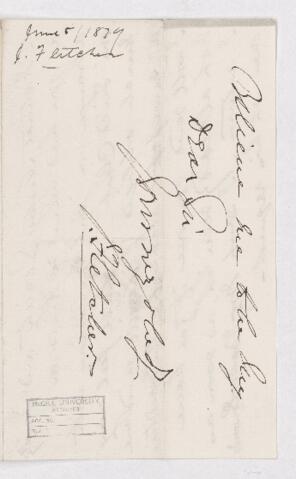 June 5/1879
J. Fletcher
Believe me to be
Dear Sir
Yours
J. Fletcher
McGILL UNIVERSITY
ARCHIVES
ACC. NO.
REF.